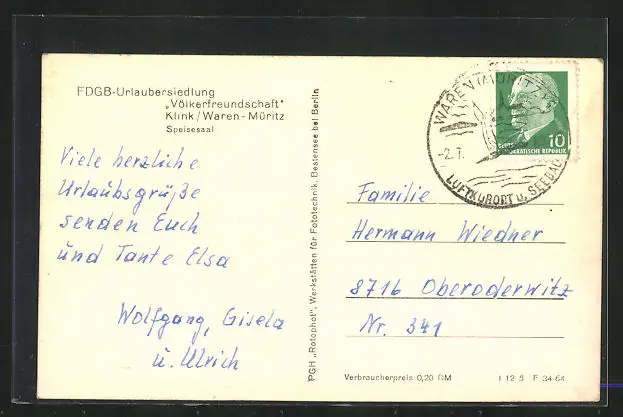 FDGB-Urlaubersiedlung
„Völkerfreundschaft"
Klink/Waren-Müritz
Speisesaal
Viele herzliche
Urlaubsgrüße
senden Euch
und Tante Elsa
Wolfgang, Gisela
u. Ulrich
PGH „Rotophot", Werkstätten für Fototechnik, Bestensee bei Berlin
WAREN (MÜRITZ)
-2.7.
LUFTKURORT u. SEEBAD
10
DEMOKRATISCHE REPUBLIK
Familie
Hermann Wiedner
8716 Oberoderwitz
Nr. 341
Verbraucherpreis 0,20 DM
I 12 5 F 34-64